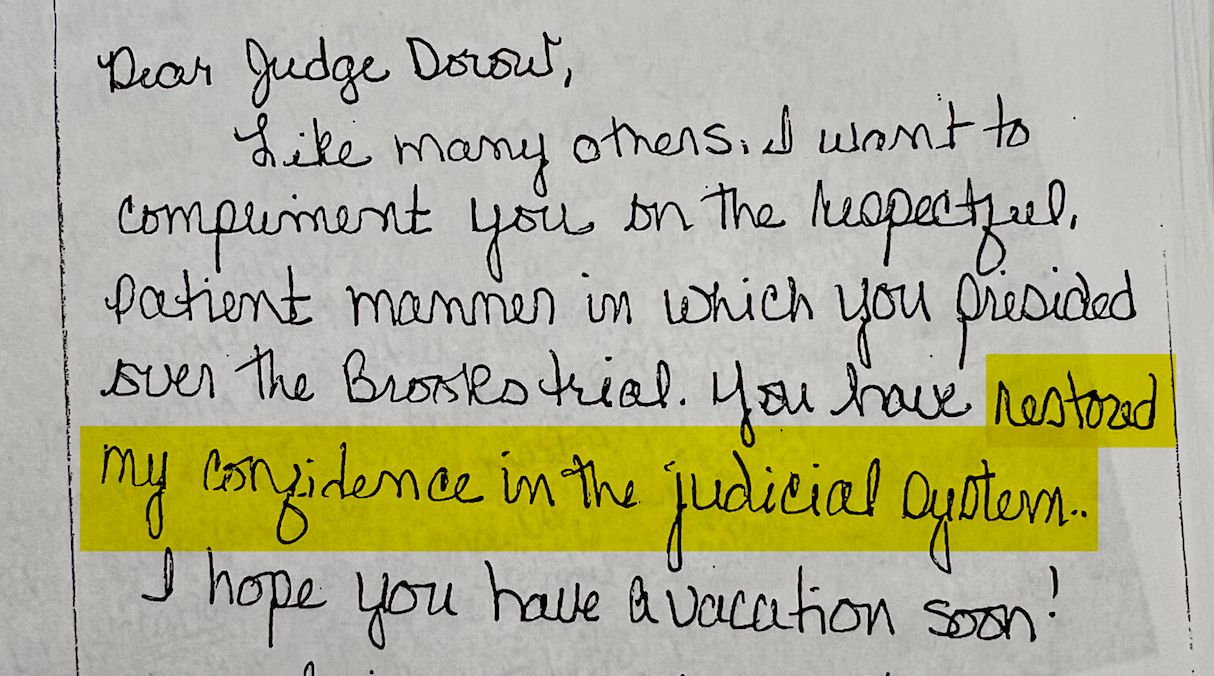 Dear Judge Dorow,
Like many others, I want to
compliment you on the respectful,
patient manner in which you presided
over the Brooks trial. You have restored
my confidence in the judicial system..
I hope you have a vacation soon!